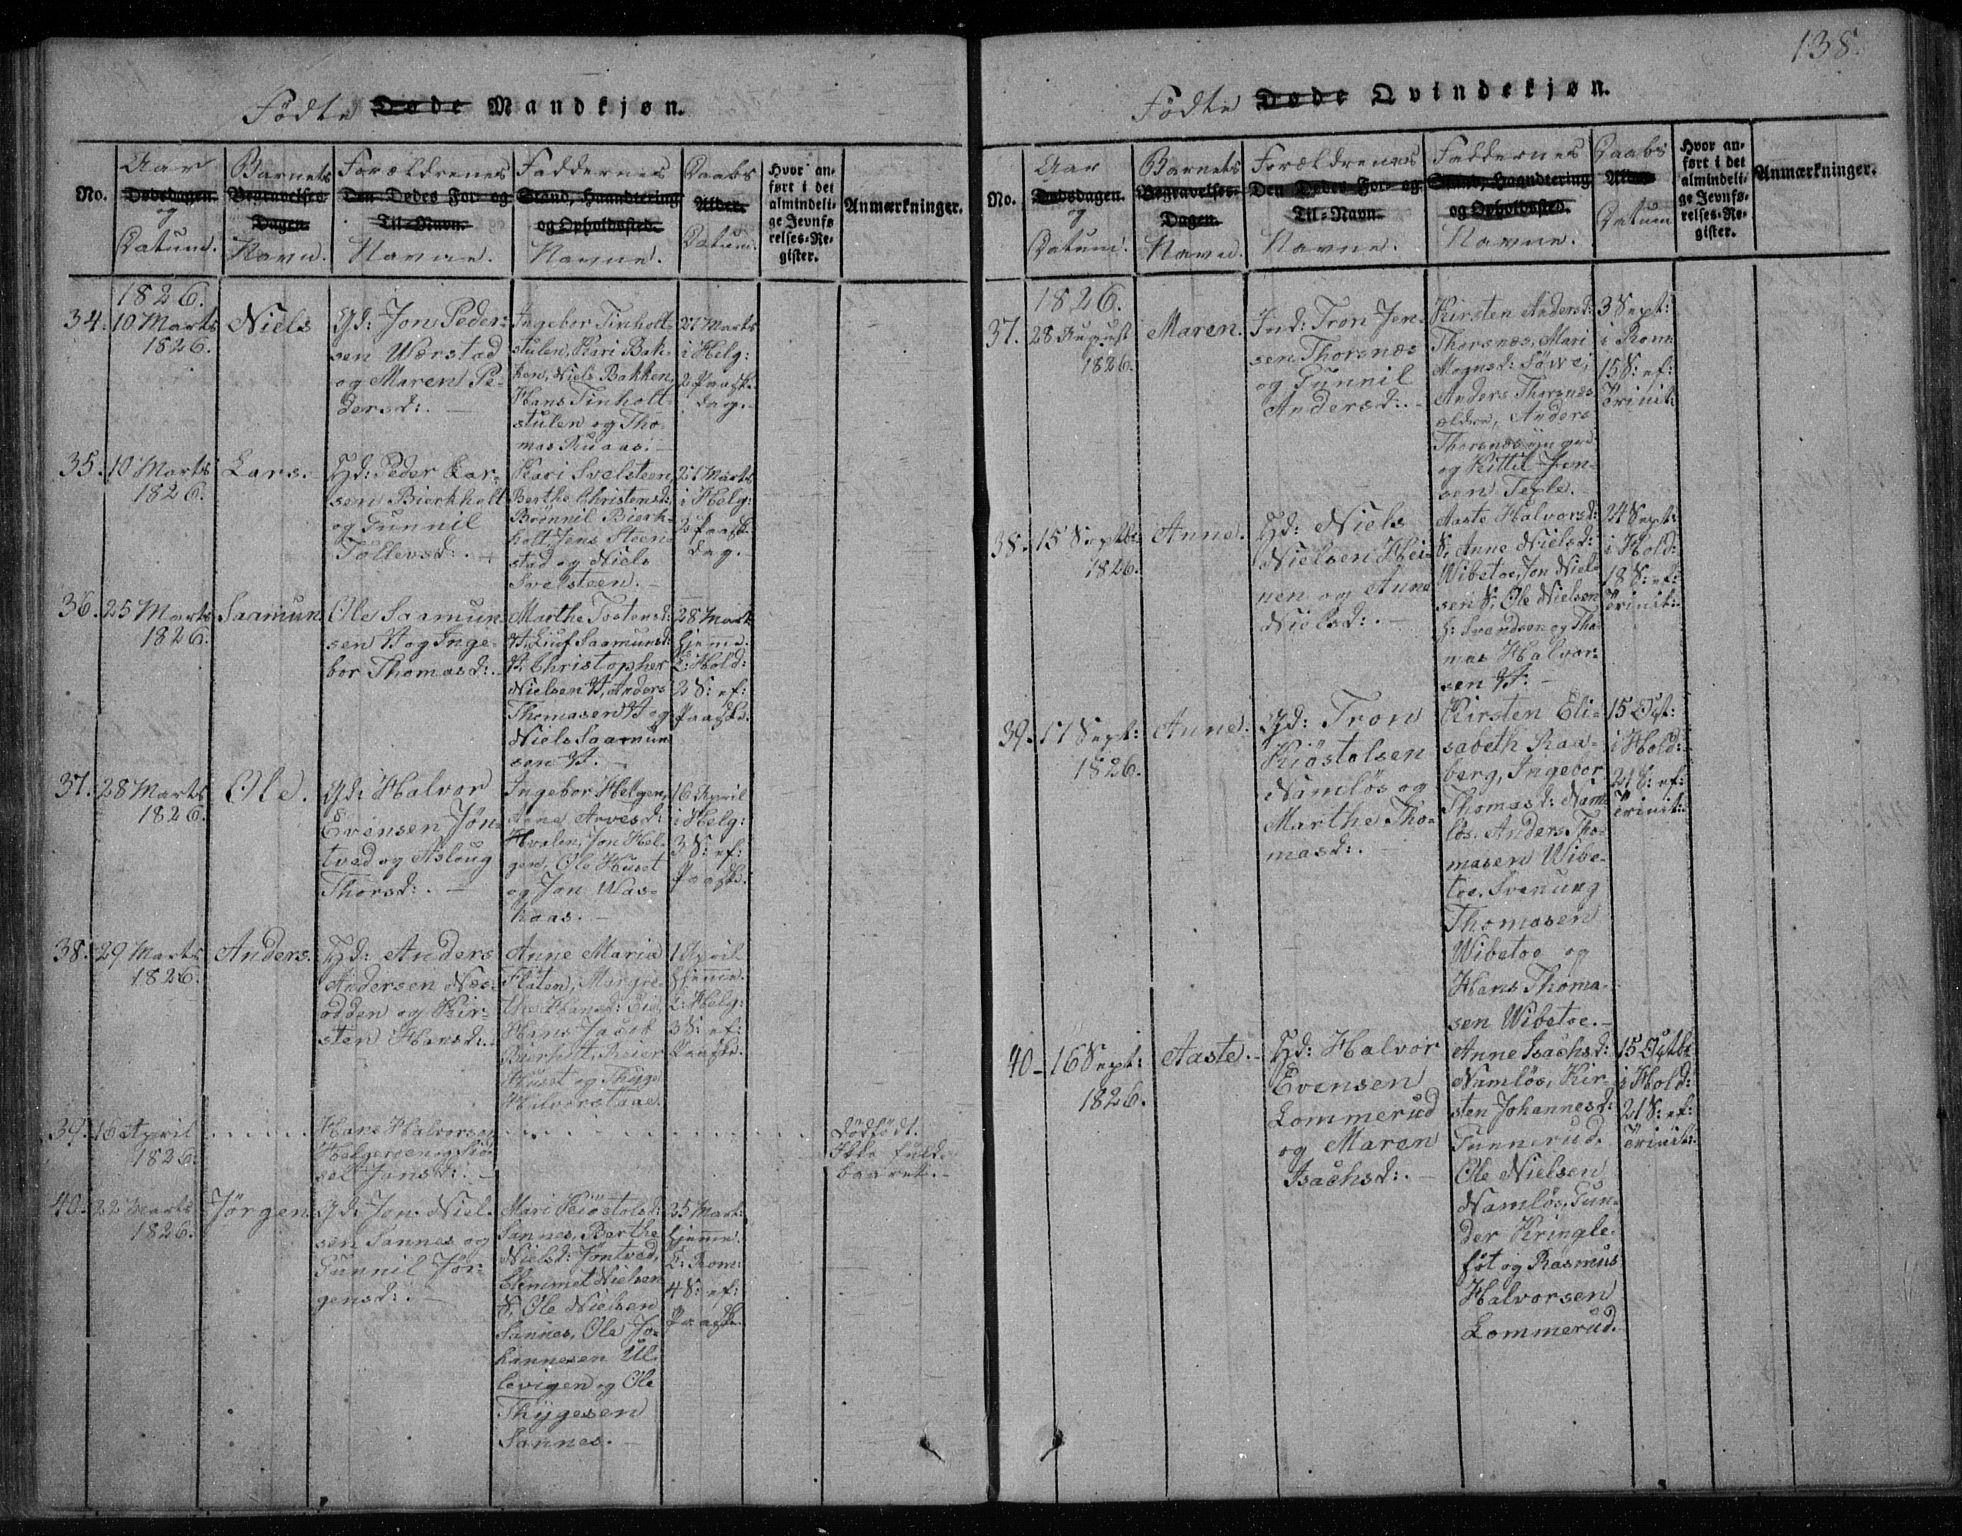 138.
Fødte Døde Mandkjøn.
No.
Aar
Dødsdagen.
og
Datum.
Barnets
Begravelses
Dagen.
Navn.
Forældrenes
Den Dødes For og
Til-Navn.
Navne.
Faddernes
Stand, Haandtering
og Opholdssted.
Navne.
Daabs
Alder.
Datum.
Hvor an-
ført i det
almindeli-
ge Jevnfø
relses-Re-
gister.
Anmærkninger.
1826.
34. 10 Marts
1826.
Niels
Gd: Jon Peder-
sen Wærstad
og Maren Pe-
dersd:. -
Ingebor Tinholt-
stulen, Kari Bak-
ken, Niels Bakken,
Hans Tinholt-
stulen og Tho-
mas Ruaas. -
27 Marts
i Helg:
2 Paaske-
dag.
35. 10 Marts
1826.
Lars.
Hd: Peder Lar-
sen Bierkholt
og Gunnil
Tollevsd:.
Kari Svelsteen,
Berthe Christensd:
Brønnil Bierk-
holt, Jens Steen-
stad og Niels
Svelsteen. -
27 Marts
i Helg:
2 Paaske
dag.
36. 25 Marts
1826.
Saamun
Ole Saamun-
sen H og Inge-
bor Thomasd:.
Marthe Tostensd:
Saamunsd:
Christopher
Nielsen H, Anders
Thomasen H og
Niels Saamun-
sen H. -
28 Mart:
hjemme.
I: Hold:
3 S: ef:
Paaske.
37. 28 Marts
1826.
Ole.
Gd: Halvor
Evensen Jøn-
tved og Asloug
Thorsd:. -
Ingebor Helgen,
Anne Arvesd:
Hvalen, Jon Hel-
gen, Ole Huset
og Jon Was-
haas. -
16 April
i Helg:
3 S: ef:
Paaske.
38. 29 Marts
1826.
Anders.
Hd: Anders
Andersen Næs-
odden og Kir-
sten Hansd:.
Anne Maria
Flaten, Margre-
the Hansd: Eie,
Hans Jacob
Bierholt, Reier
Huset og Thyge
Hilverstaae.
1 April
hjemme.
I: Helg:
3 S: ef:
Paaske.
39. 16 April
1826.
Hans Halvorsen
Helgeroen og Sid-
sel Jonsd:. -
Dødfødt.
Ikke fuld-
baaret. -
40. 22 Marts
1826.
Jörgen
Gd: Jon Niel-
sen Sannes og
Gunnil Jör-
gensd:. -
Mari Kiöstolsd:
Sannes, Berthe
Nielsd: Jöntved,
Clemmet Nielsen
S, Ole Nielsen
Sannes, Ole Jo-
hannesen Ul-
levigen og Ole
Thygesen
Sannes. -
25 Mart:
hjemme.
I: Rom:
4 S: ef:
Paaske.
Fødte Døde Qvindekjøn.
No.
Aar
Dødsdagen.
og
Datum.
Barnets
Begravelses-
Dagen.
Navn.
Forældrenes
Den Dødes For- og
Til-Navn.
Navne.
Faddernes
Stand, Haandtering
og Opholdssted.
Navne.
Daabs
Alder
Datum
Hvor an-
ført i det
almindeli-
ge Jevnfø-
relses-Re-
gister.
Anmærkninger.
1826.
37. 28 August
1826.
Maren.
Ind: Tron Jen-
sen Thorsnæs
og Gunnil
Andersd:. -
Kirsten Andersd:
Thorsnæs, Mari
Mognsd: Söwe,
Anders Thorsnæs
ældre, Anders
Thorsnæs yngre
og Kittil Jen-
sen Teple.
3 Sept:
i Rom:
15 S: ef:
Trinit:
38. 15 Septbr:
1826.
Anne.
Hd: Niels
Nielsen Hei-
nen og Anne
Nielsd:. -
Aaste Halvorsd:
S, Anne Nielsd:
Wibetoe, Jon Niel-
sen S, Ole Nielsen
Svendsen og Tho-
mas Halvor-
sen H. -
24 Sept:
i Hold:
18 S: ef:
Trinit:
39. 17 Sept:
1826.
Anne.
Gd: Tron
Kiöstolsen
Namlös og
Marthe Tho-
masd:. -
Kirsten Eli-
sabeth Raa-
berg, Ingebor
Thomasd: Nam-
lös, Anders Tho-
masen Wibe-
toe, Svenung
Thomasen
Wibetoe og
Hans Thoma-
sen Wibetoe. -
15 Oct:
i Hold:
21 S: ef:
Trinit:
40. 16 Sept:
1826.
Aaste.
Hd: Halvor
Evensen
Lommerud
og Maren
Isachsd:. -
Anne Isachsd:
Namlös, Kir-
sten Johannesd:
Tunnerud,
Ole Nielsen
Namlös, Gun-
der Kringle-
fot og Rasmus
Halvorsen
Lommerud. -
15 Octbr:
i Hold:
21 S: ef:
Trinit: